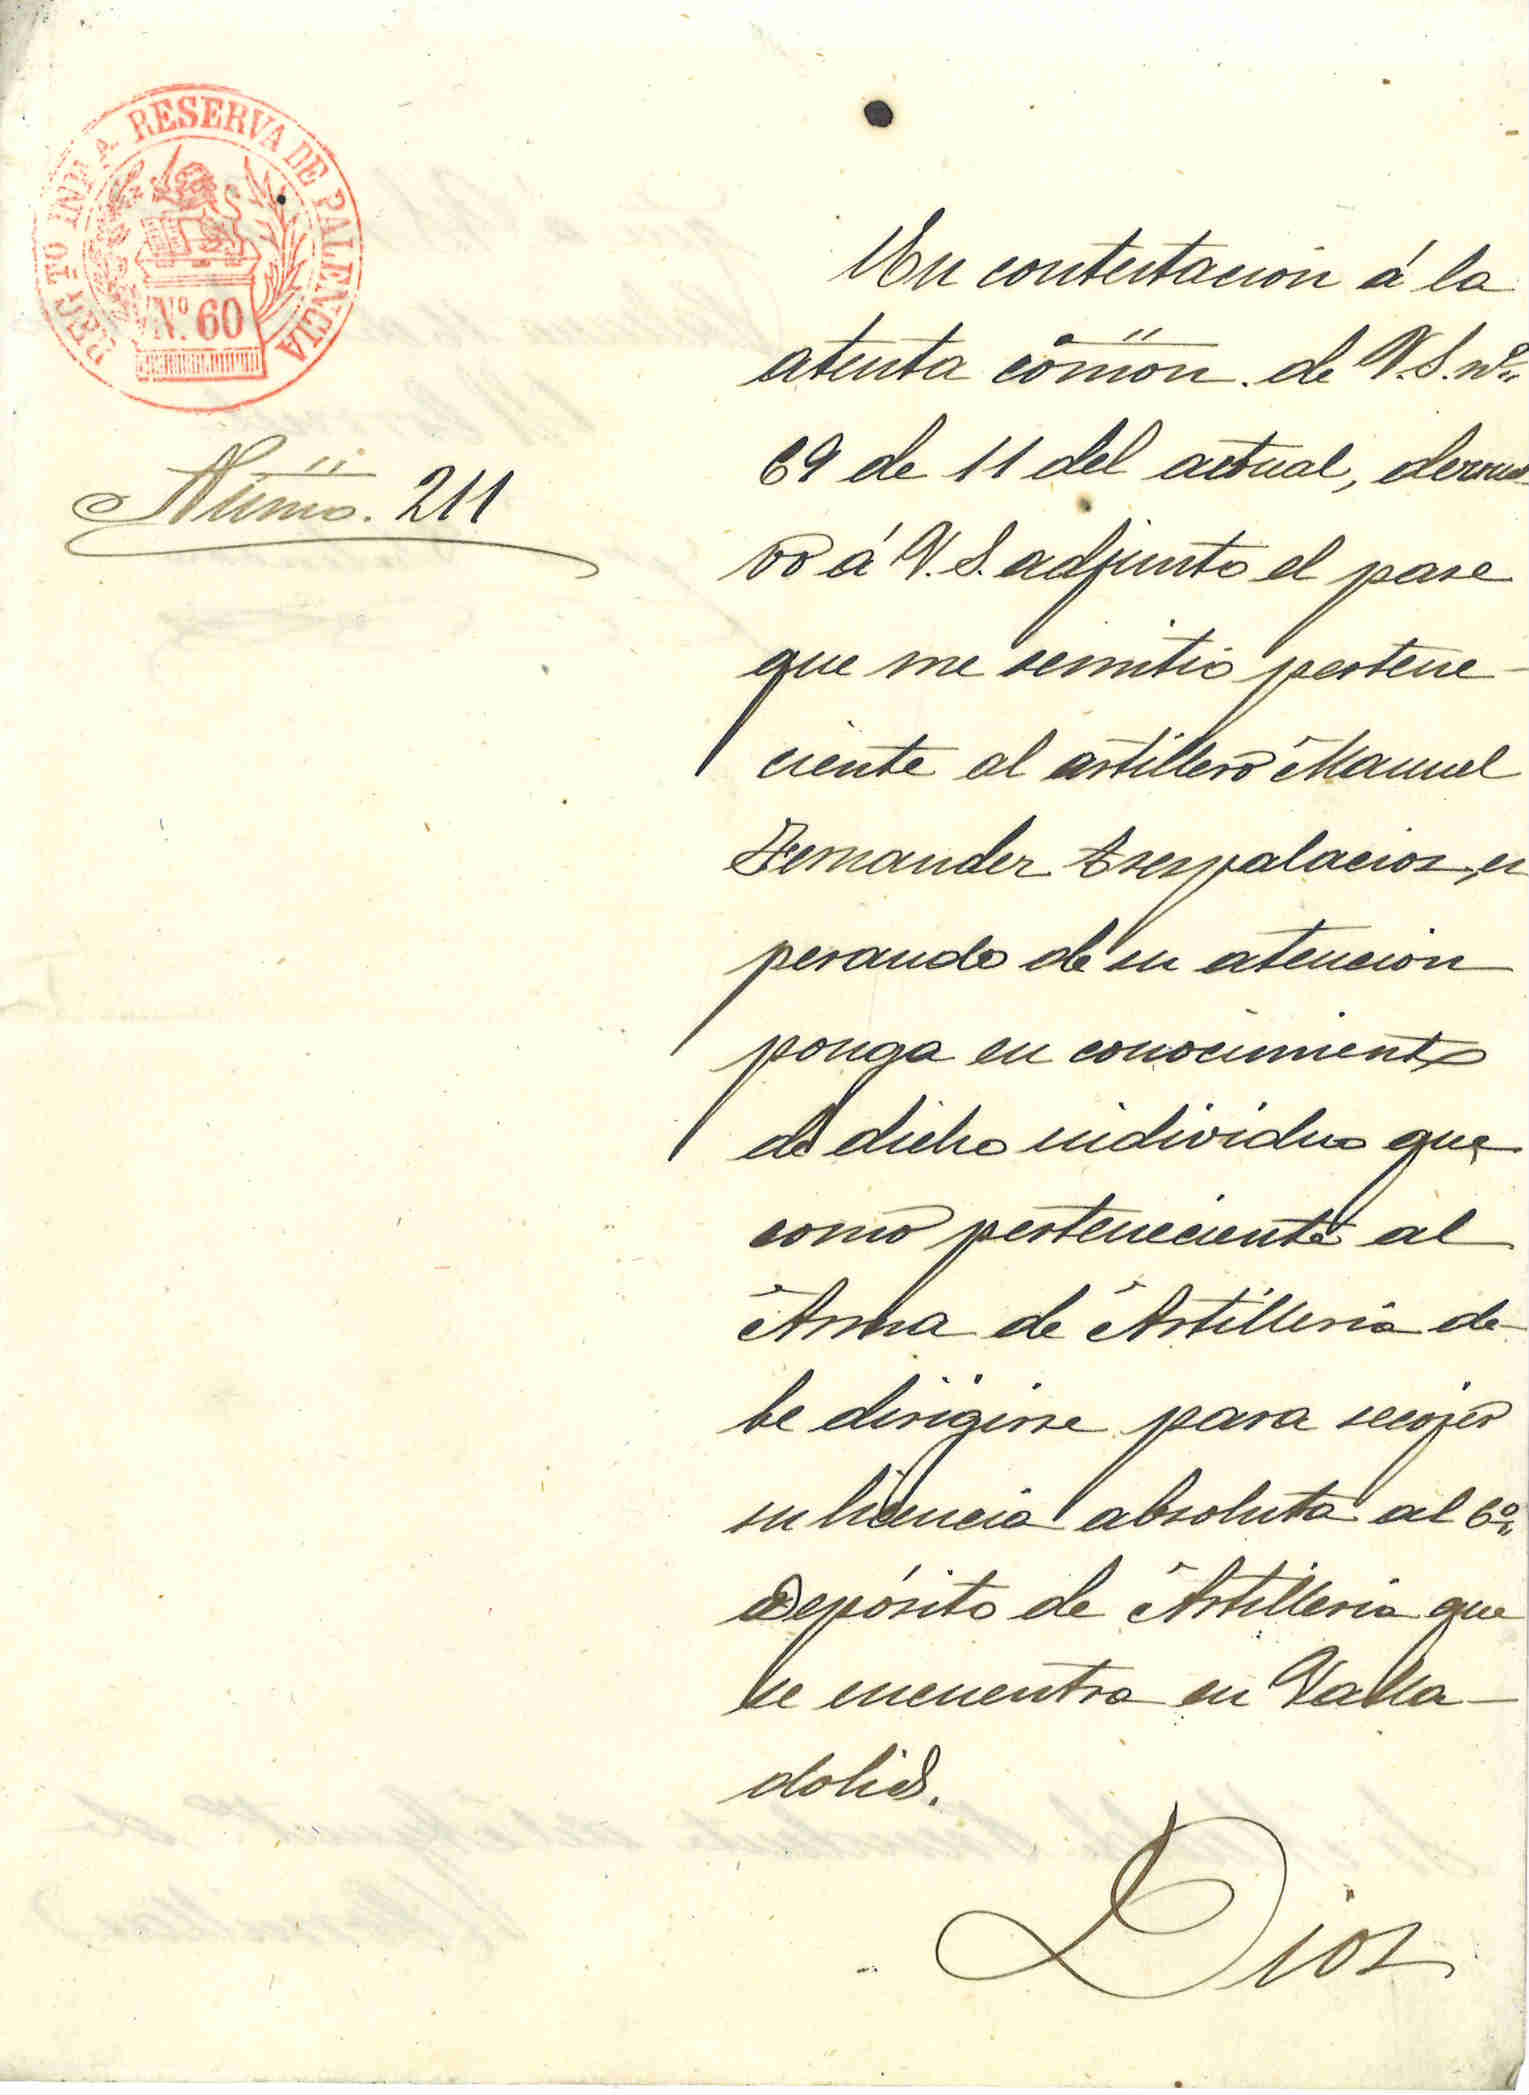 REG.TO INF.A RESERVA DE PALENCIA
Nº. 60
Núm. 211
En contestación á la
atenta comon. de V.S. nº
69 de 11 del actual, devuel
vo á V.S. adjunto el pase
que me remitió pertene-
ciente al artillero Manuel
Fernandez Trespalacios, es
perando de su atencion
ponga en conocimiento
de dicho individuo que
como perteneciente al
Arma de Artilleria de-
be dirigirse para recojer
su licencia absoluta al 6º
Depósito de Artilleria que
se encuentra en Valla-
dolid.
Dios